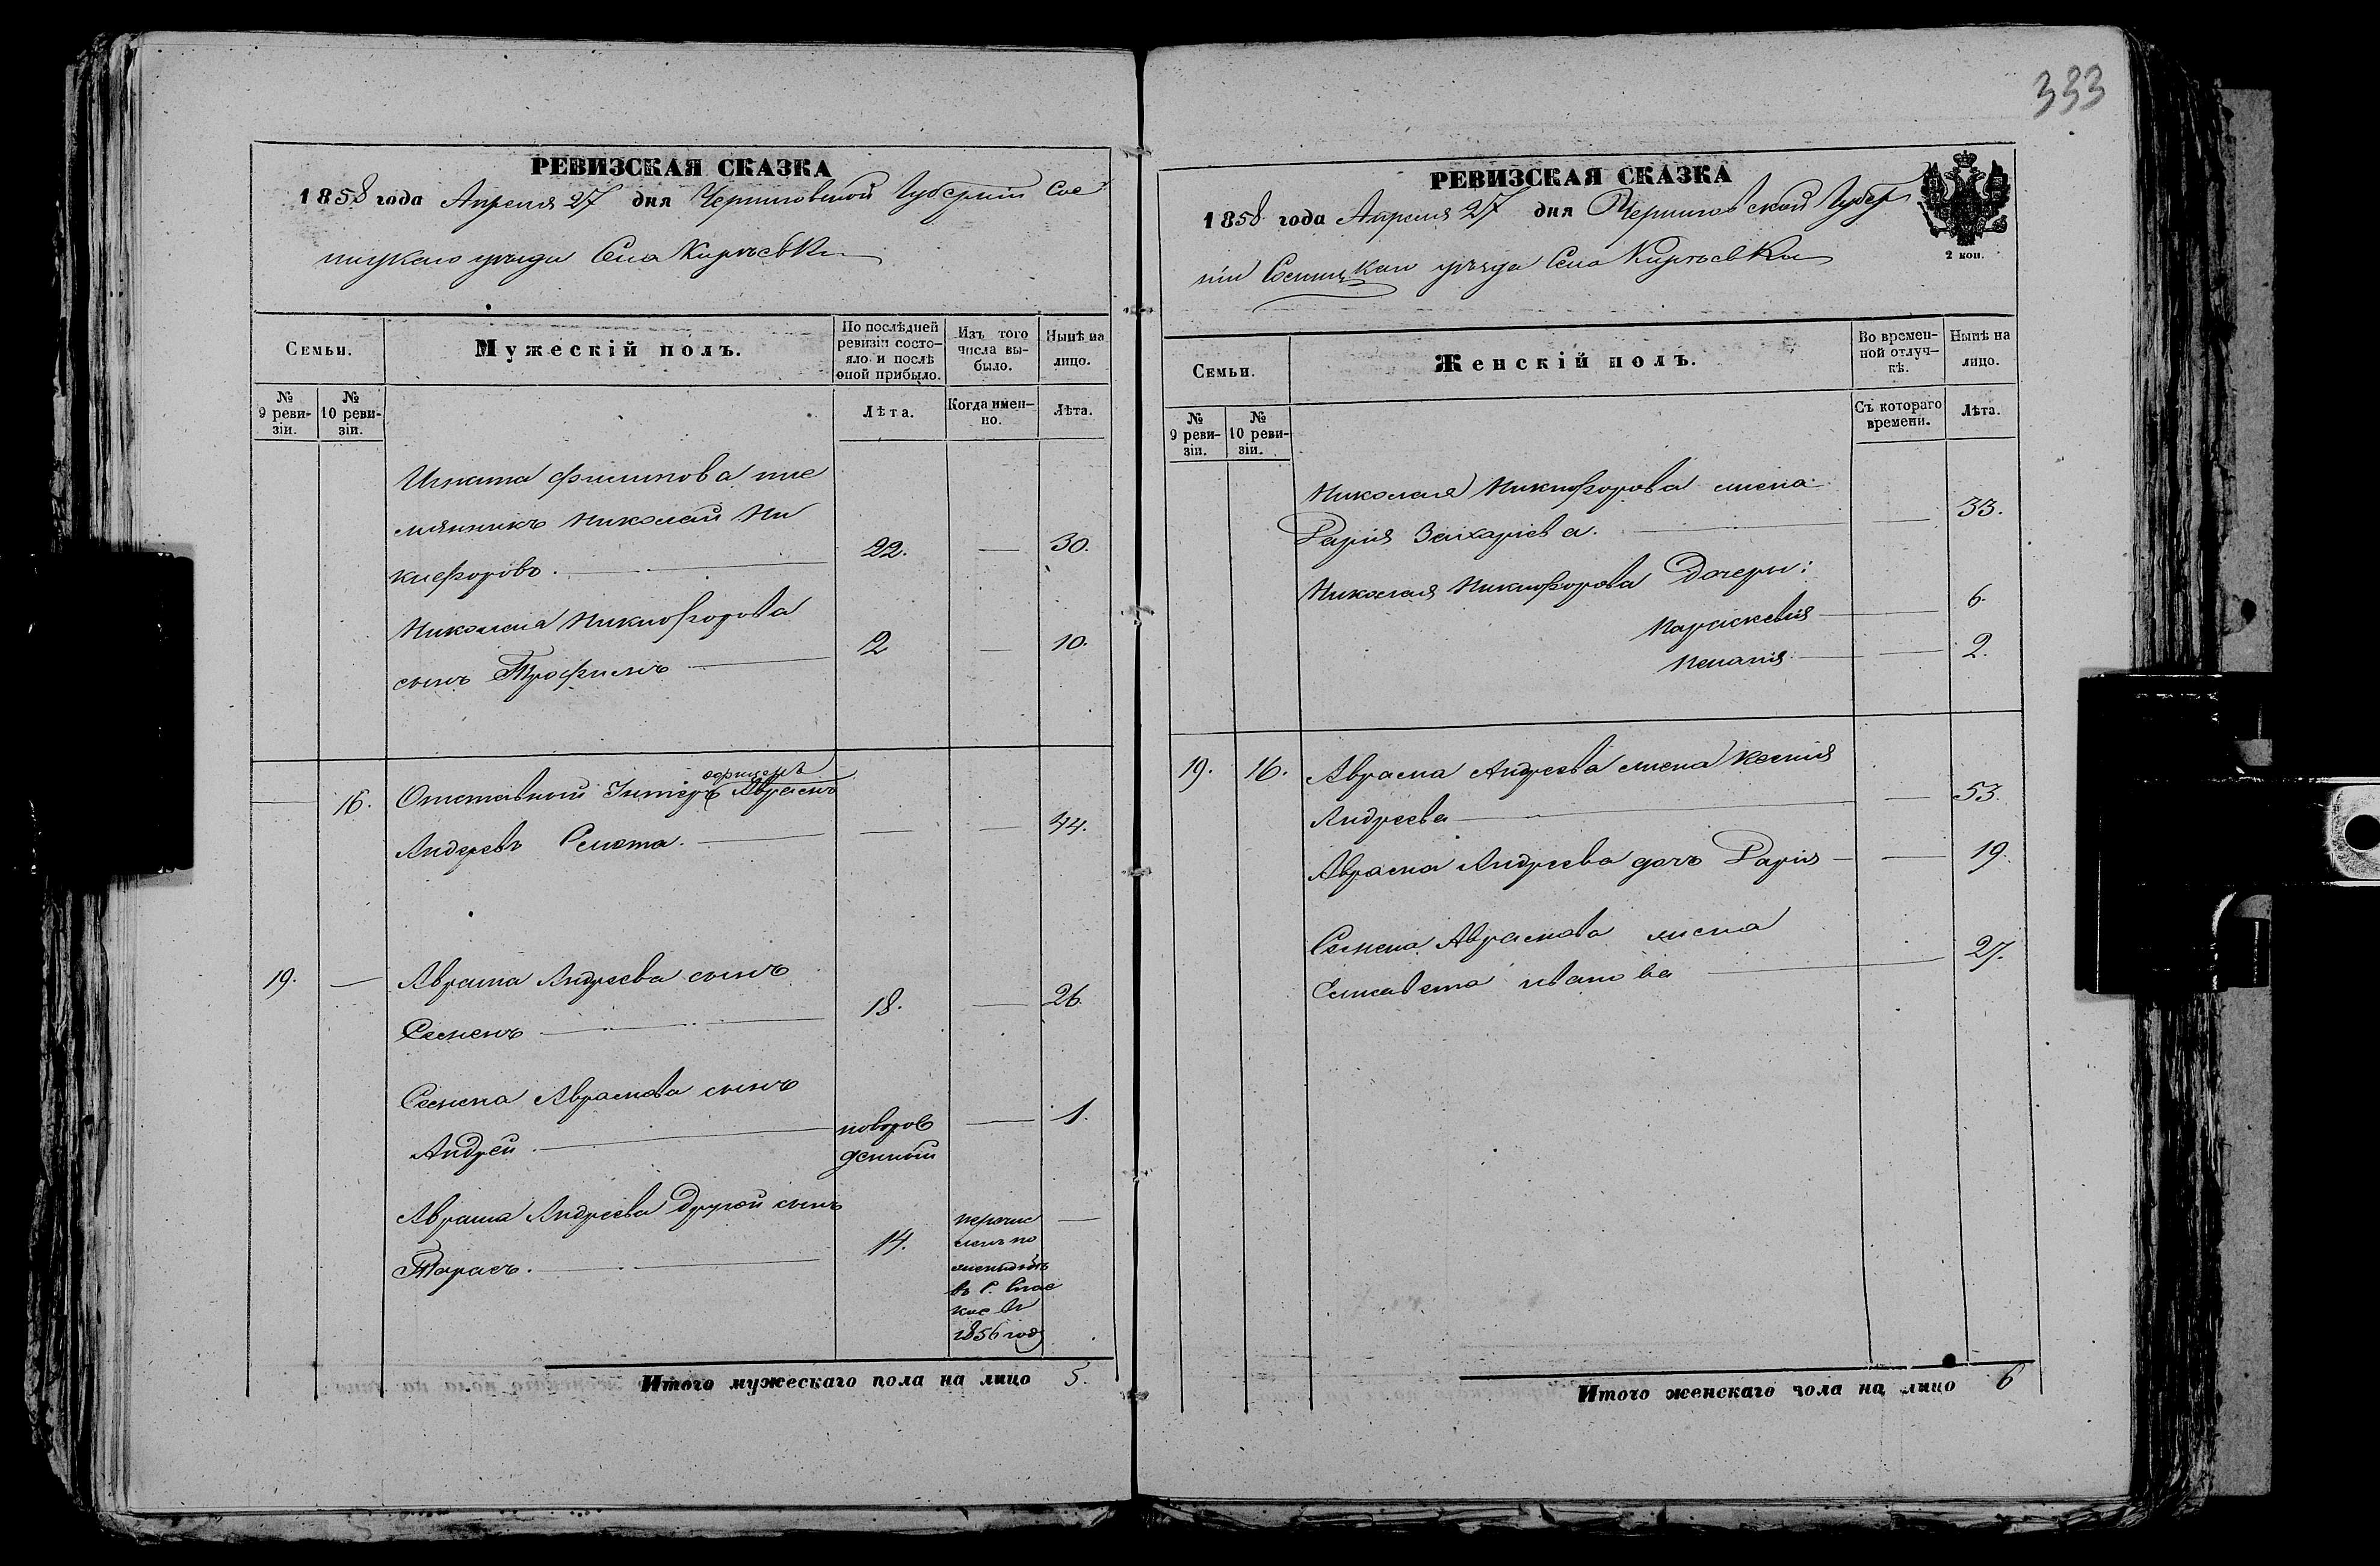 333
РЕВИЗСКАЯ СКАЗКА
1858 года Апреля 27 дня Черниговской Губерніи Сос
ницкаго уѣзда Села Кирѣевки
Семьи.
Мужескій полъ.
По послѣдней ревизіи состо-
яло и послѣ
оной прибыло.
Изъ того
числа вы-
было.
Нынѣ на
лицо.
№
9 реви-
зіи.
№
10 реви-
зіи.
Лѣта.
Когда имен-
но.
Лѣта.
Игната Филипова пле
мянникъ Николай Ни
кифоровъ. 22. — 30.
Николая Никифорова
сынъ Трофимъ 2 — 10.
офицеръ
— 16. Отставный Унтеръ Аврамъ
Андреевъ — — 44.
19. — Аврама Андреева сынъ
Семенъ 18. — 26.
Семена Аврамова сынъ
Андрей. новорож
денный — 1.
Аврама Андреева другой сынъ
Тарасъ. 14. —
перечис
ленъ по
въ С. Спас
кое въ
1856 году
Итого мужескаго пола на лицо 5.
РЕВИЗСКАЯ СКАЗКА
1858 года Апреля 27 дня Черниговской Губер
ніи Сосницкаго уѣзда Села Кирѣевки
2 коп.
Семьи.
Женскій полъ.
Во времен-
ной отлуч-
кѣ.
Нынѣ на
лицо.
№
9 реви-
зіи.
№
10 реви-
зіи.
Съ котораго
времени.
Лѣта.
Николая Никифорова жена
Дарія Захаріева. — 33.
Николая Никифорова Дочеры:
Параскевія — 6.
Пелагія — 2.
19. 16. Аврама Андреева жена Ксенія
Андреева — 53.
Аврама Андреева дочь Дарія — 19.
Семена Аврамова жена
Елисавета иванова 27.
Итого женскаго пола на лицо 6